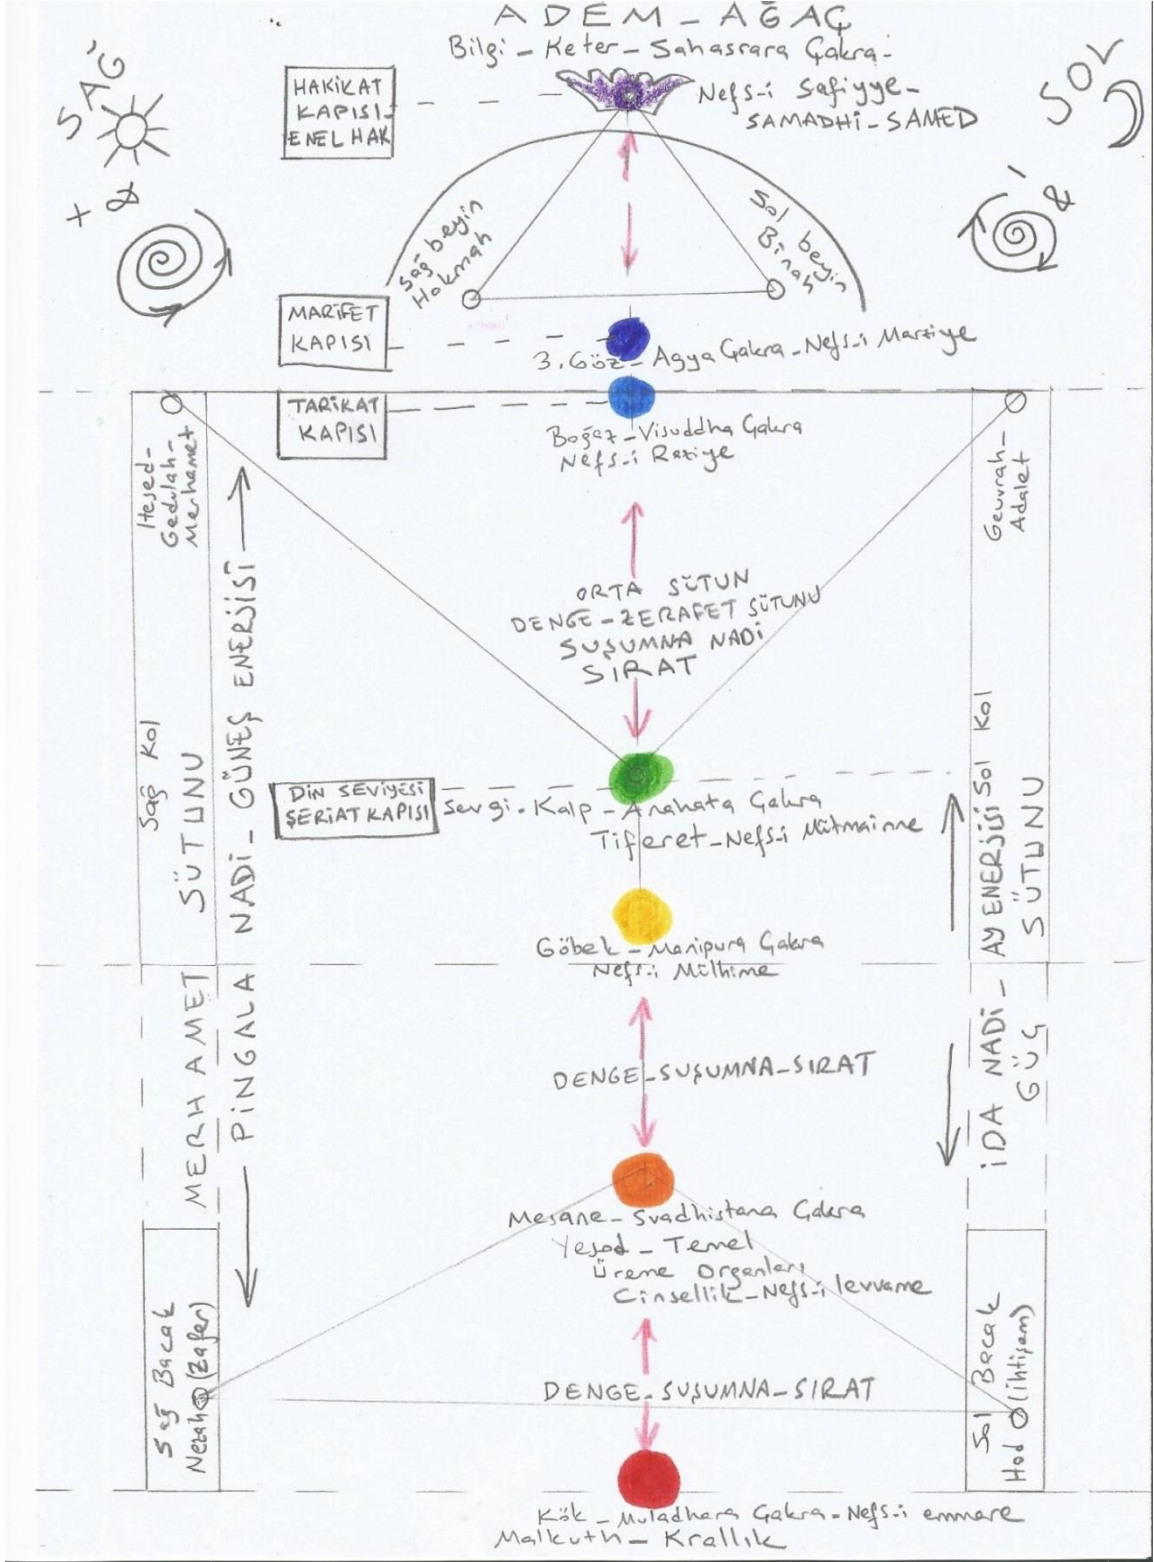 ADEM - AĞAÇ
Bilgi - Keter - Sahasrara Çakra -
Nefs-i Safiyye -
SAMADHI - SAMED
SAĞ
SOL
+
-
&
HAKİKAT
KAPISI -
ENEL HAK
Sağ beyin
Hokmah
Sol beyin
Binah
MARİFET
KAPISI
3. Göz - Agya Çakra - Nefs-i Marziye
TARİKAT
KAPISI
Boğaz - Visuddha Çakra
Nefs-i Raziye
Hesed -
Gedulah -
Merhamet
Gevurah -
Adalet
ORTA SÜTUN
DENGE - ZERAFET SÜTUNU
SUŞUMNA NADİ
SIRAT
DİN SEVİYESİ
ŞERİAT KAPISI
Sevgi - Kalp - Anahata Çakra
Tiferet - Nefs-i Mütmainne
Göbek - Manipura Çakra
Nefs-i Mülhime
Sağ Kol
MERHAMET SÜTUNU
PİNGALA NADİ - GÜNEŞ ENERJİSİ
İDA NADİ - AY ENERJİSİ
Sol Kol
GÜÇ SÜTUNU
DENGE - SUŞUMNA - SIRAT
Mesane - Svadhistana Çakra
Yesod - Temel
Üreme Organları
Cinsellik - Nefs-i levvame
Sağ Bacak
Nezah (Zafer)
Sol Bacak
Hod (ihtişam)
DENGE - SUŞUMNA - SIRAT
Kök - Muladhara Çakra - Nefs-i emmare
Malkuth - Krallık